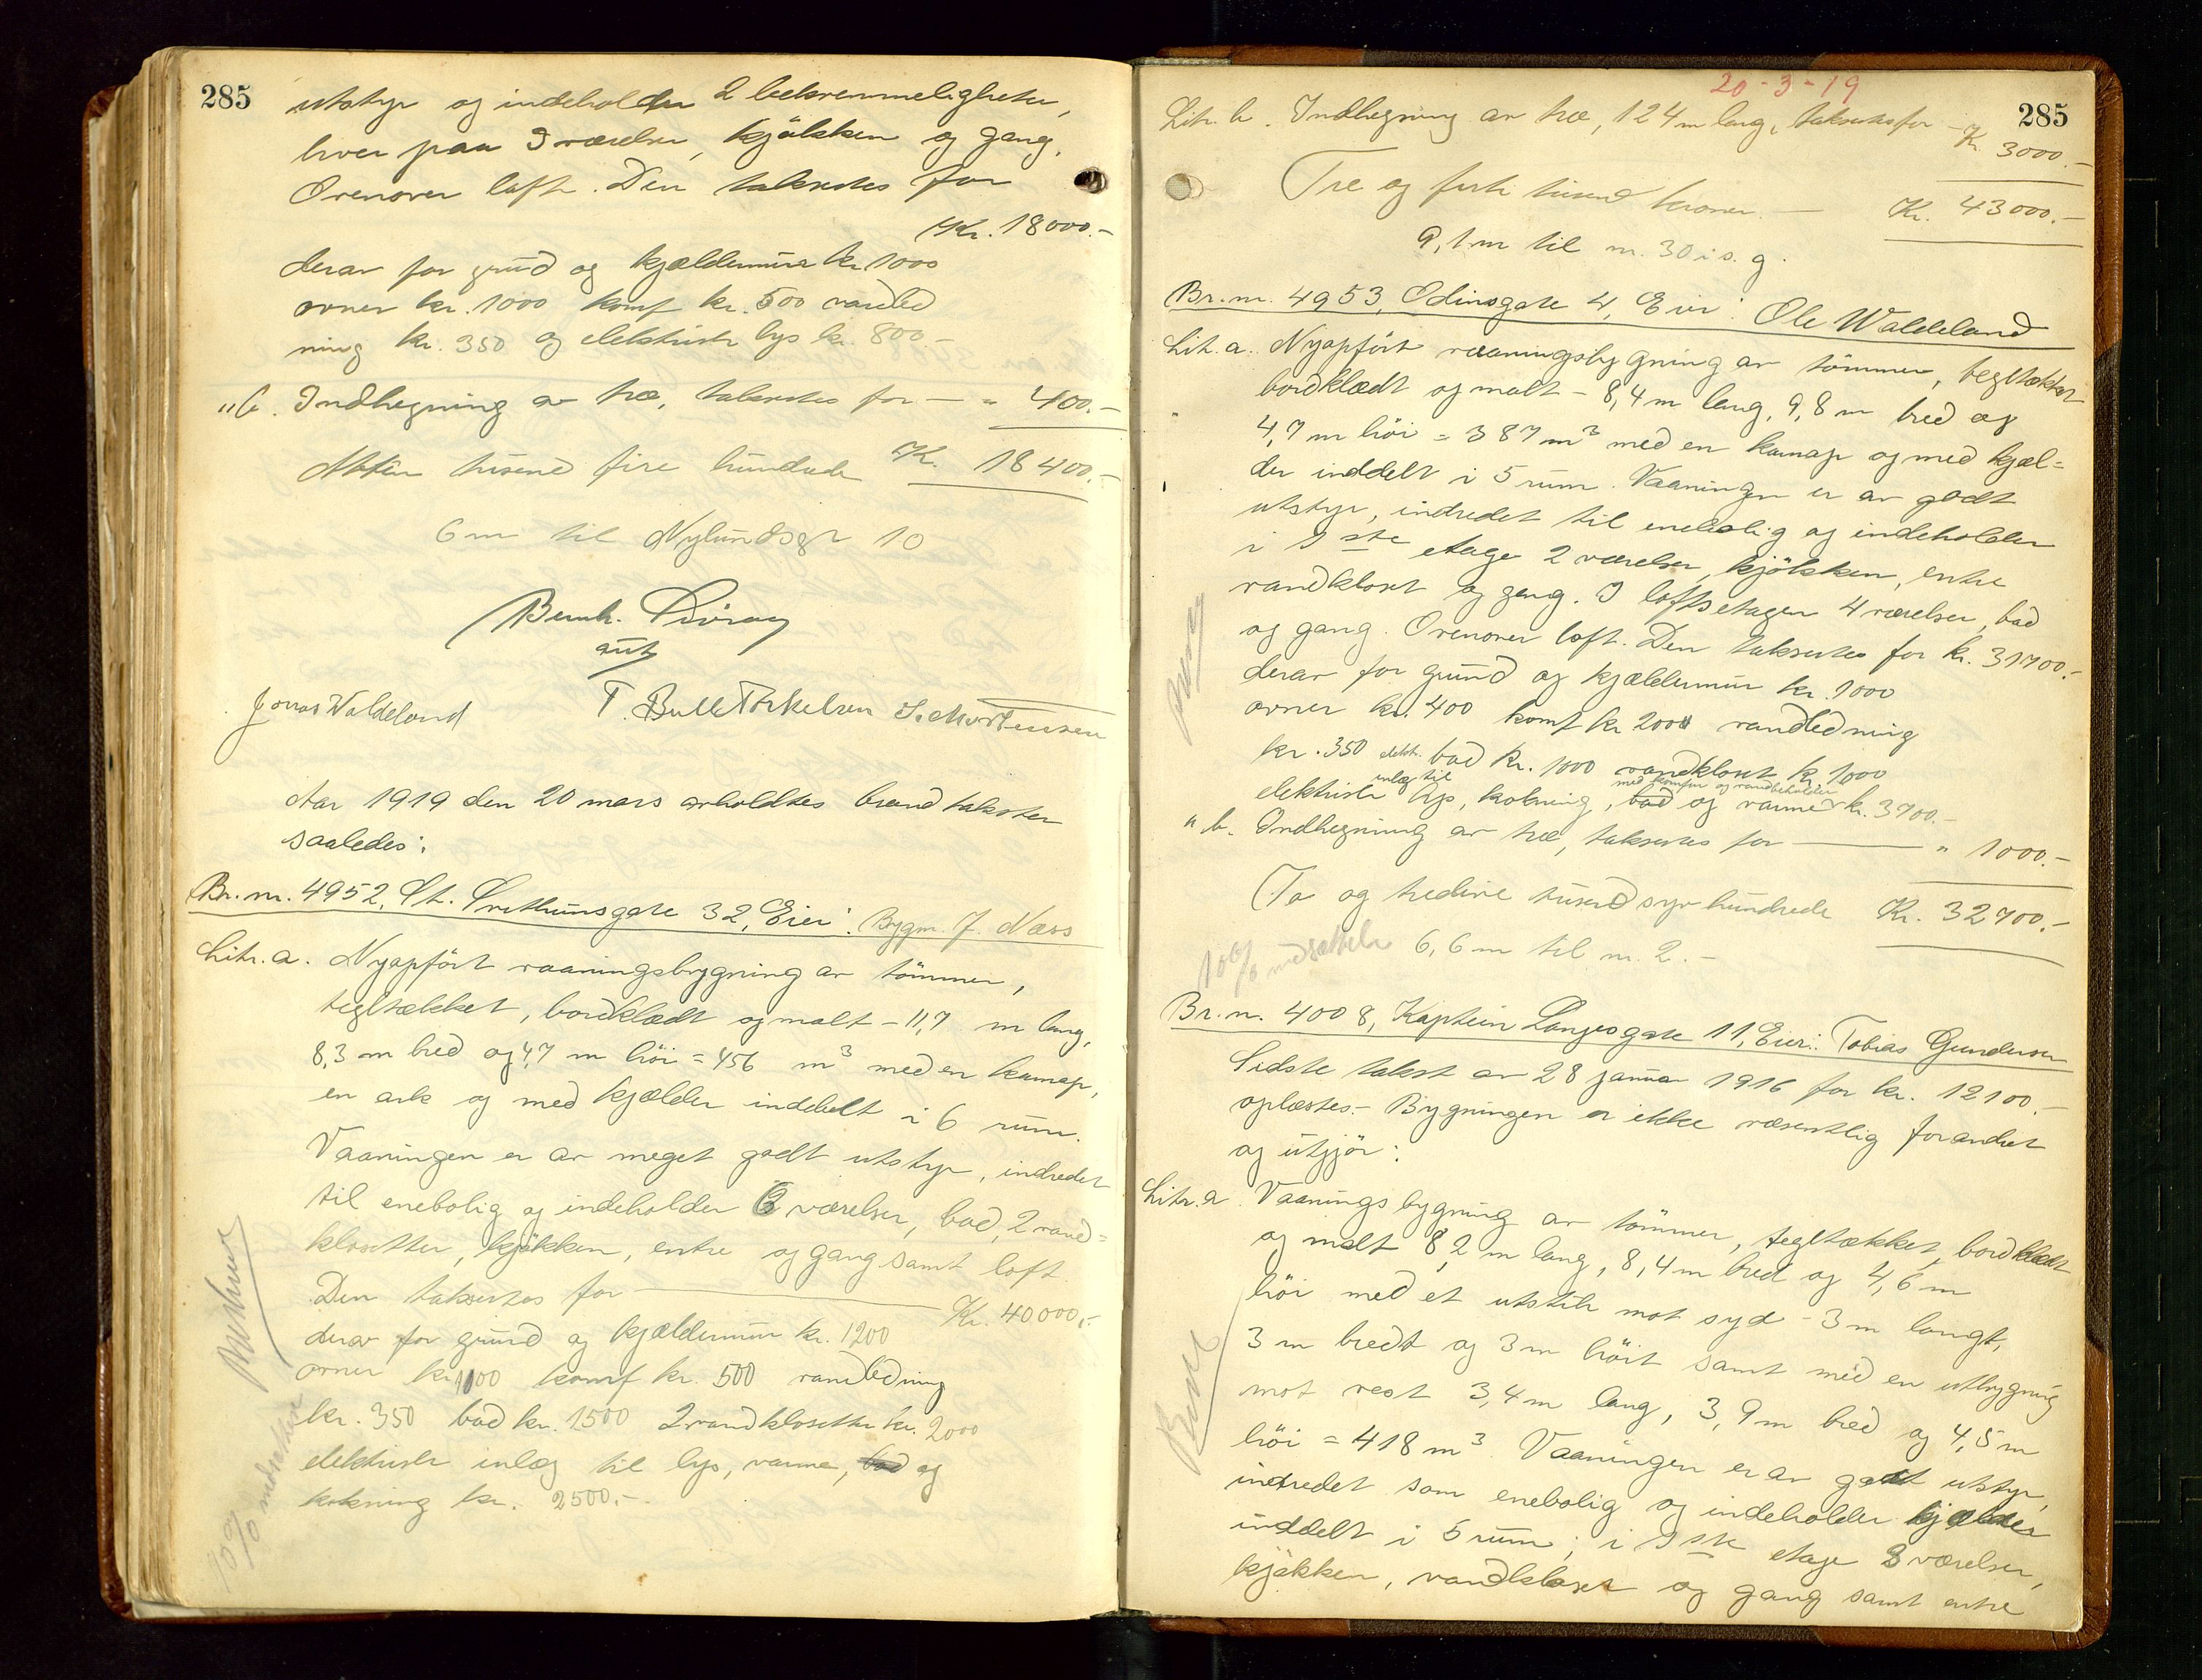 285
utstyr og indeholder 2 bekvemmeligheter,
hver paa 3 værelser, kjökken og gang.
Ovenover loft. Den takseres for
Kr. 18000.-
derav for grund og kjældermur kr. 1000
ovner kr. 1000 komf kr. 500 vandled
ning kr. 350 og elektrisk lys kr. 800.-
" b. Indhegning av træ, takseres for - " 400.-
Atten tusend fire hundrede Kr. 18400.-
6 m til Nylundsgt 10
Bernh.
aut
Jonas Waldeland T. Bull Torkelsen S. Mortensen
Aar 1919 den 20 mars avholdtes brandtakster
saaledes:
Br. nr. 4952, St. Svithunsgate 32, Eier: Bygm. J. Næss
Litr. a. Nyopfört vaaningsbygning av tömmer,
tegltækket, bordklædt og malt - 11,7 m lang,
8,3 m bred og 4,7 m höi = 456 m³ med en karnap,
en ark og med kjælder inddelt i 6 rum.
Vaaningen er av meget godt utstyr, indredet
til enebolig og indeholder 6 værelser, bad, 2 vand=
klosetter, kjökken, entre og gang samt loft.
Den takseres for Kr. 40000.-
derav for grund og kjældermur kr. 1200
ovner kr. 1100 komf kr. 500 vandledning
kr. 350 bad kr. 1500 2 vandklosetter kr. 2000
elektrisk inlæg til lys, varme, bad og
kokning kr. 2500.-
10% nedsættelse
20-3-19
285
Litr. b. Indhegning av træ, 124 m lang, takseres for - Kr. 3000.-
Tre og firti tusend kroner. - Kr. 43000.-
9,1 m til nr. 30 i s. g.
Br. nr. 4953, Odinsgate 4, Eier: Ole Waldeland
Litr. a. Nyopfört vaaningsbygning av tömmer, tegltækket
bordklædt og malt - 8,4 m lang, 9,8 m bred og
4,7 m höi = 387 m³ med en karnap og med kjæl=
der inddelt i 5 rum. Vaaningen er av godt
utstyr, indredet til enebolig og indeholder
i 1ste etage 2 værelser, kjökken, entre
vandkloset og gang. I loftsetagen 4 værelser, bad
og gang. Ovenover loft. Den takseres for kr. 31700.-
derav for grund og kjældermur kr. 1000
ovner kr. 400 komf kr 2000 vandledning
kr. 350 elektr. bad kr. 1000 vandkloset kr. 1000
inlæg til med komfur og vandbeholder
elektrisk lys, kokning, bad og varme kr. 3700.-
" b. Indhegning av træ, takseres for " 1000.-
To og tredive tusend syv hundrede Kr. 32700.-
10% nedsættelse 6,6 m til nr. 2. -
Br. nr. 4008, Kaptein Langesgate 11, Eier: Tobias Gundersen
Sidste takst av 28 januar 1916 for kr. 12100.-
oplæstes.- Bygningen er ikke væsentlig forandret
og utgjör:
Litr. a. Vaaningsbygning av tömmer, tegltækket, bordklædt
og malt 8,2 m lang, 8,4 m bred og 4,6 m
höi med et utstik mot syd - 3 m langt,
3 m bredt og 3 m höit samt med en utbygning
mot vest 3,4 m lang, 3,9 m bred og 4,5 m
höi = 418 m³. Vaaningen er av godt utstyr,
indredet som enebolig og indeholder kjælder
inddelt i 5 rum; i 1ste etage 3 værelser,
kjökken, vandkloset og gang samt entre